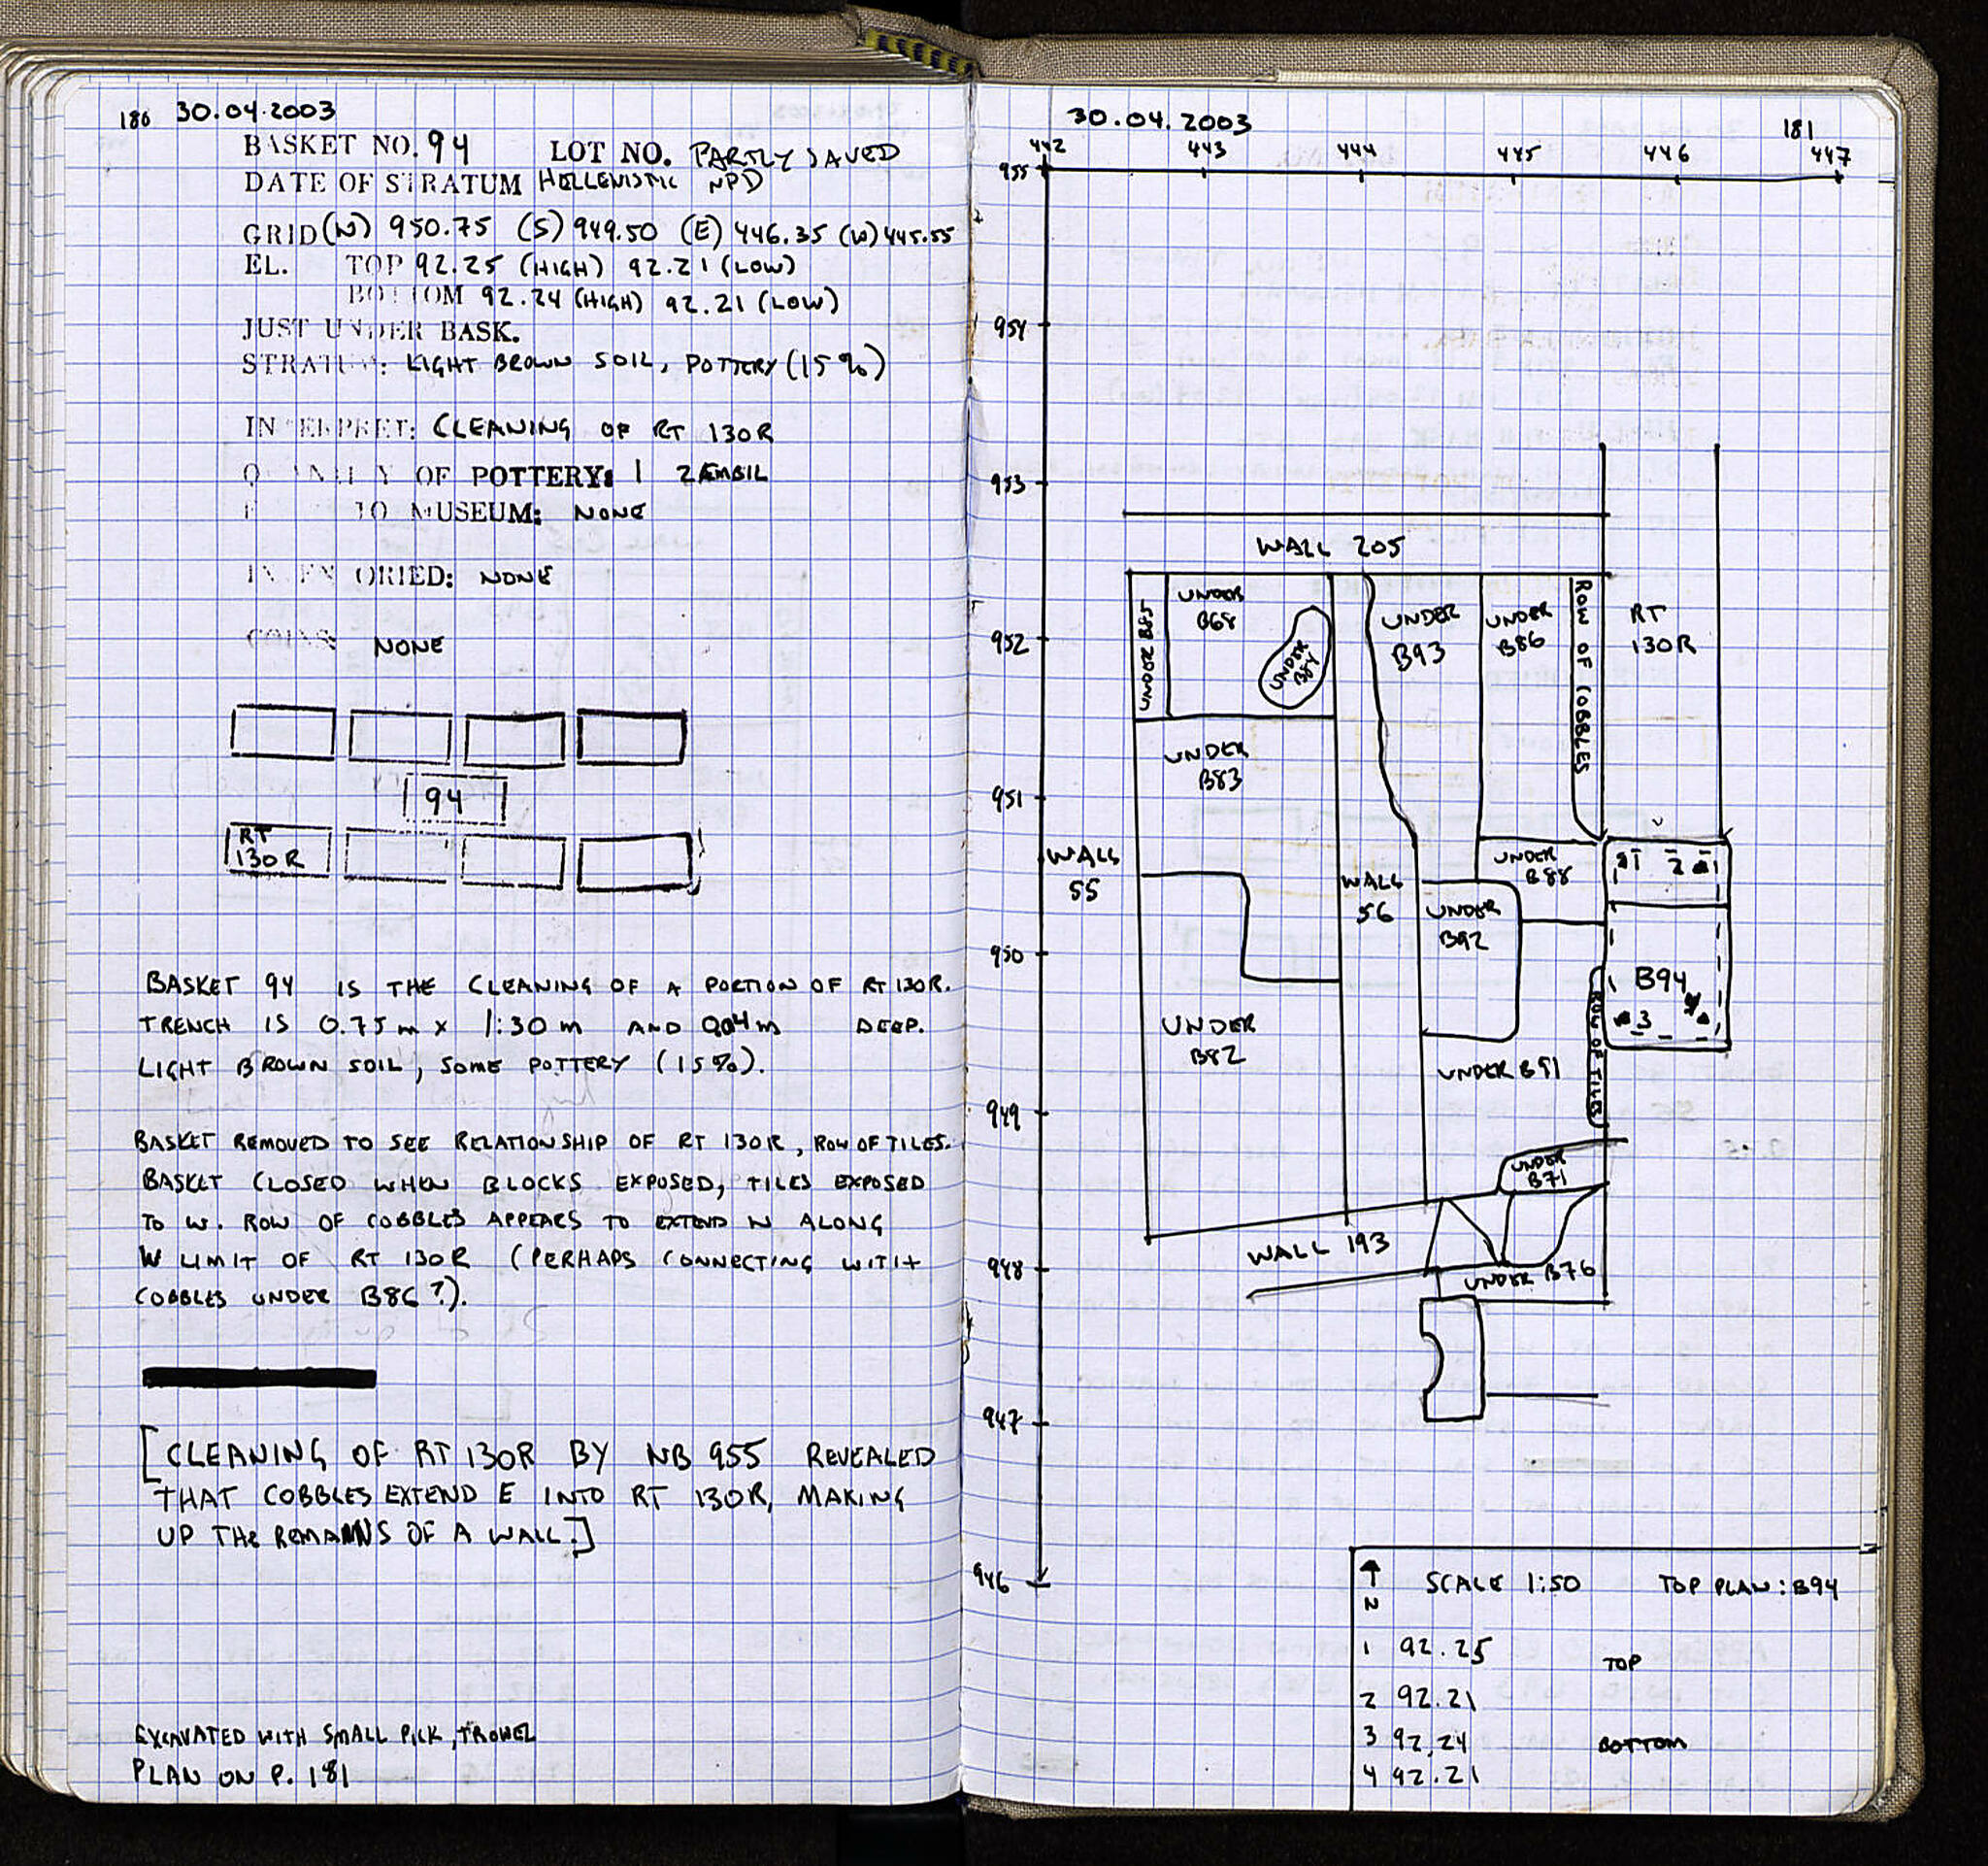 180 30.04.2003
BASKET NO. 94 LOT NO. PARTLY SAVED
DATE OF STRATUM HELLENISTIC NPD
GRID (N) 950.75 (S) 949.50 (E) 446.35 (W) 445.55
EL. TOP 92.25 (HIGH) 92.21 (LOW)
BOTTOM 92.24 (HIGH) 92.21 (LOW)
JUST UNDER BASK.
STRATUM: LIGHT BROWN SOIL, POTTERY (15%)
INTERPRET: CLEANING OF RT 130R
QUANTITY OF POTTERY: 1 ZEMBIL
TO MUSEUM: NONE
INVENTORIED: NONE
COINS: NONE
94
RT
130R
BASKET 94 IS THE CLEANING OF A PORTION OF RT 130R.
TRENCH IS 0.75 m x 1:30 m AND 0.04 m DEEP.
LIGHT BROWN SOIL, SOME POTTERY (15%).
BASKET REMOVED TO SEE RELATIONSHIP OF RT 130R, ROW OF TILES.
BASKET CLOSED WHEN BLOCKS EXPOSED, TILES EXPOSED
TO W. ROW OF COBBLES APPEARS TO EXTEND N ALONG
W LIMIT OF RT 130R (PERHAPS CONNECTING WITH
COBBLES UNDER B86?).
[CLEANING OF RT 130R BY NB 955 REVEALED
THAT COBBLES EXTEND E INTO RT 130R, MAKING
UP THE REMAINS OF A WALL.]
EXCAVATED WITH SMALL PICK, TROWEL
PLAN ON P. 181
30.04.2003 181
442 443 444 445 446 447
955
954
953
WALL 205
UNDER B85
UNDER
B68
UNDER
B84
UNDER
B93
UNDER
B86
ROW OF COBBLES
RT
130R
952
UNDER
B83
951
WALL
55
WALL
56
UNDER
B88
1 2
UNDER
B92
950
B94
3
ROW OF TILES
UNDER
B82
UNDER B91
949
UNDER
B71
WALL 193
948
UNDER B76
947
946
N
SCALE 1:50 TOP PLAN: B94
1 92.25
TOP
2 92.21
3 92.24
BOTTOM
4 92.21